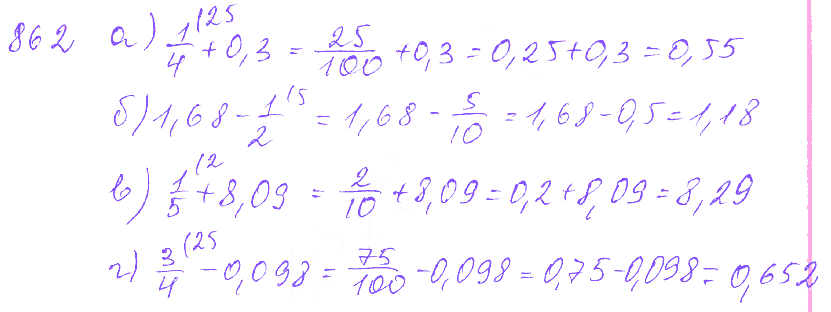 862 а) 1/4 (25 + 0,3 = 25/100 + 0,3 = 0,25 + 0,3 = 0,55
б) 1,68 - 1/2 (5 = 1,68 - 5/10 = 1,68 - 0,5 = 1,18
в) 1/5 (2 + 8,09 = 2/10 + 8,09 = 0,2 + 8,09 = 8,29
г) 3/4 (25 - 0,098 = 75/100 - 0,098 = 0,75 - 0,098 = 0,652